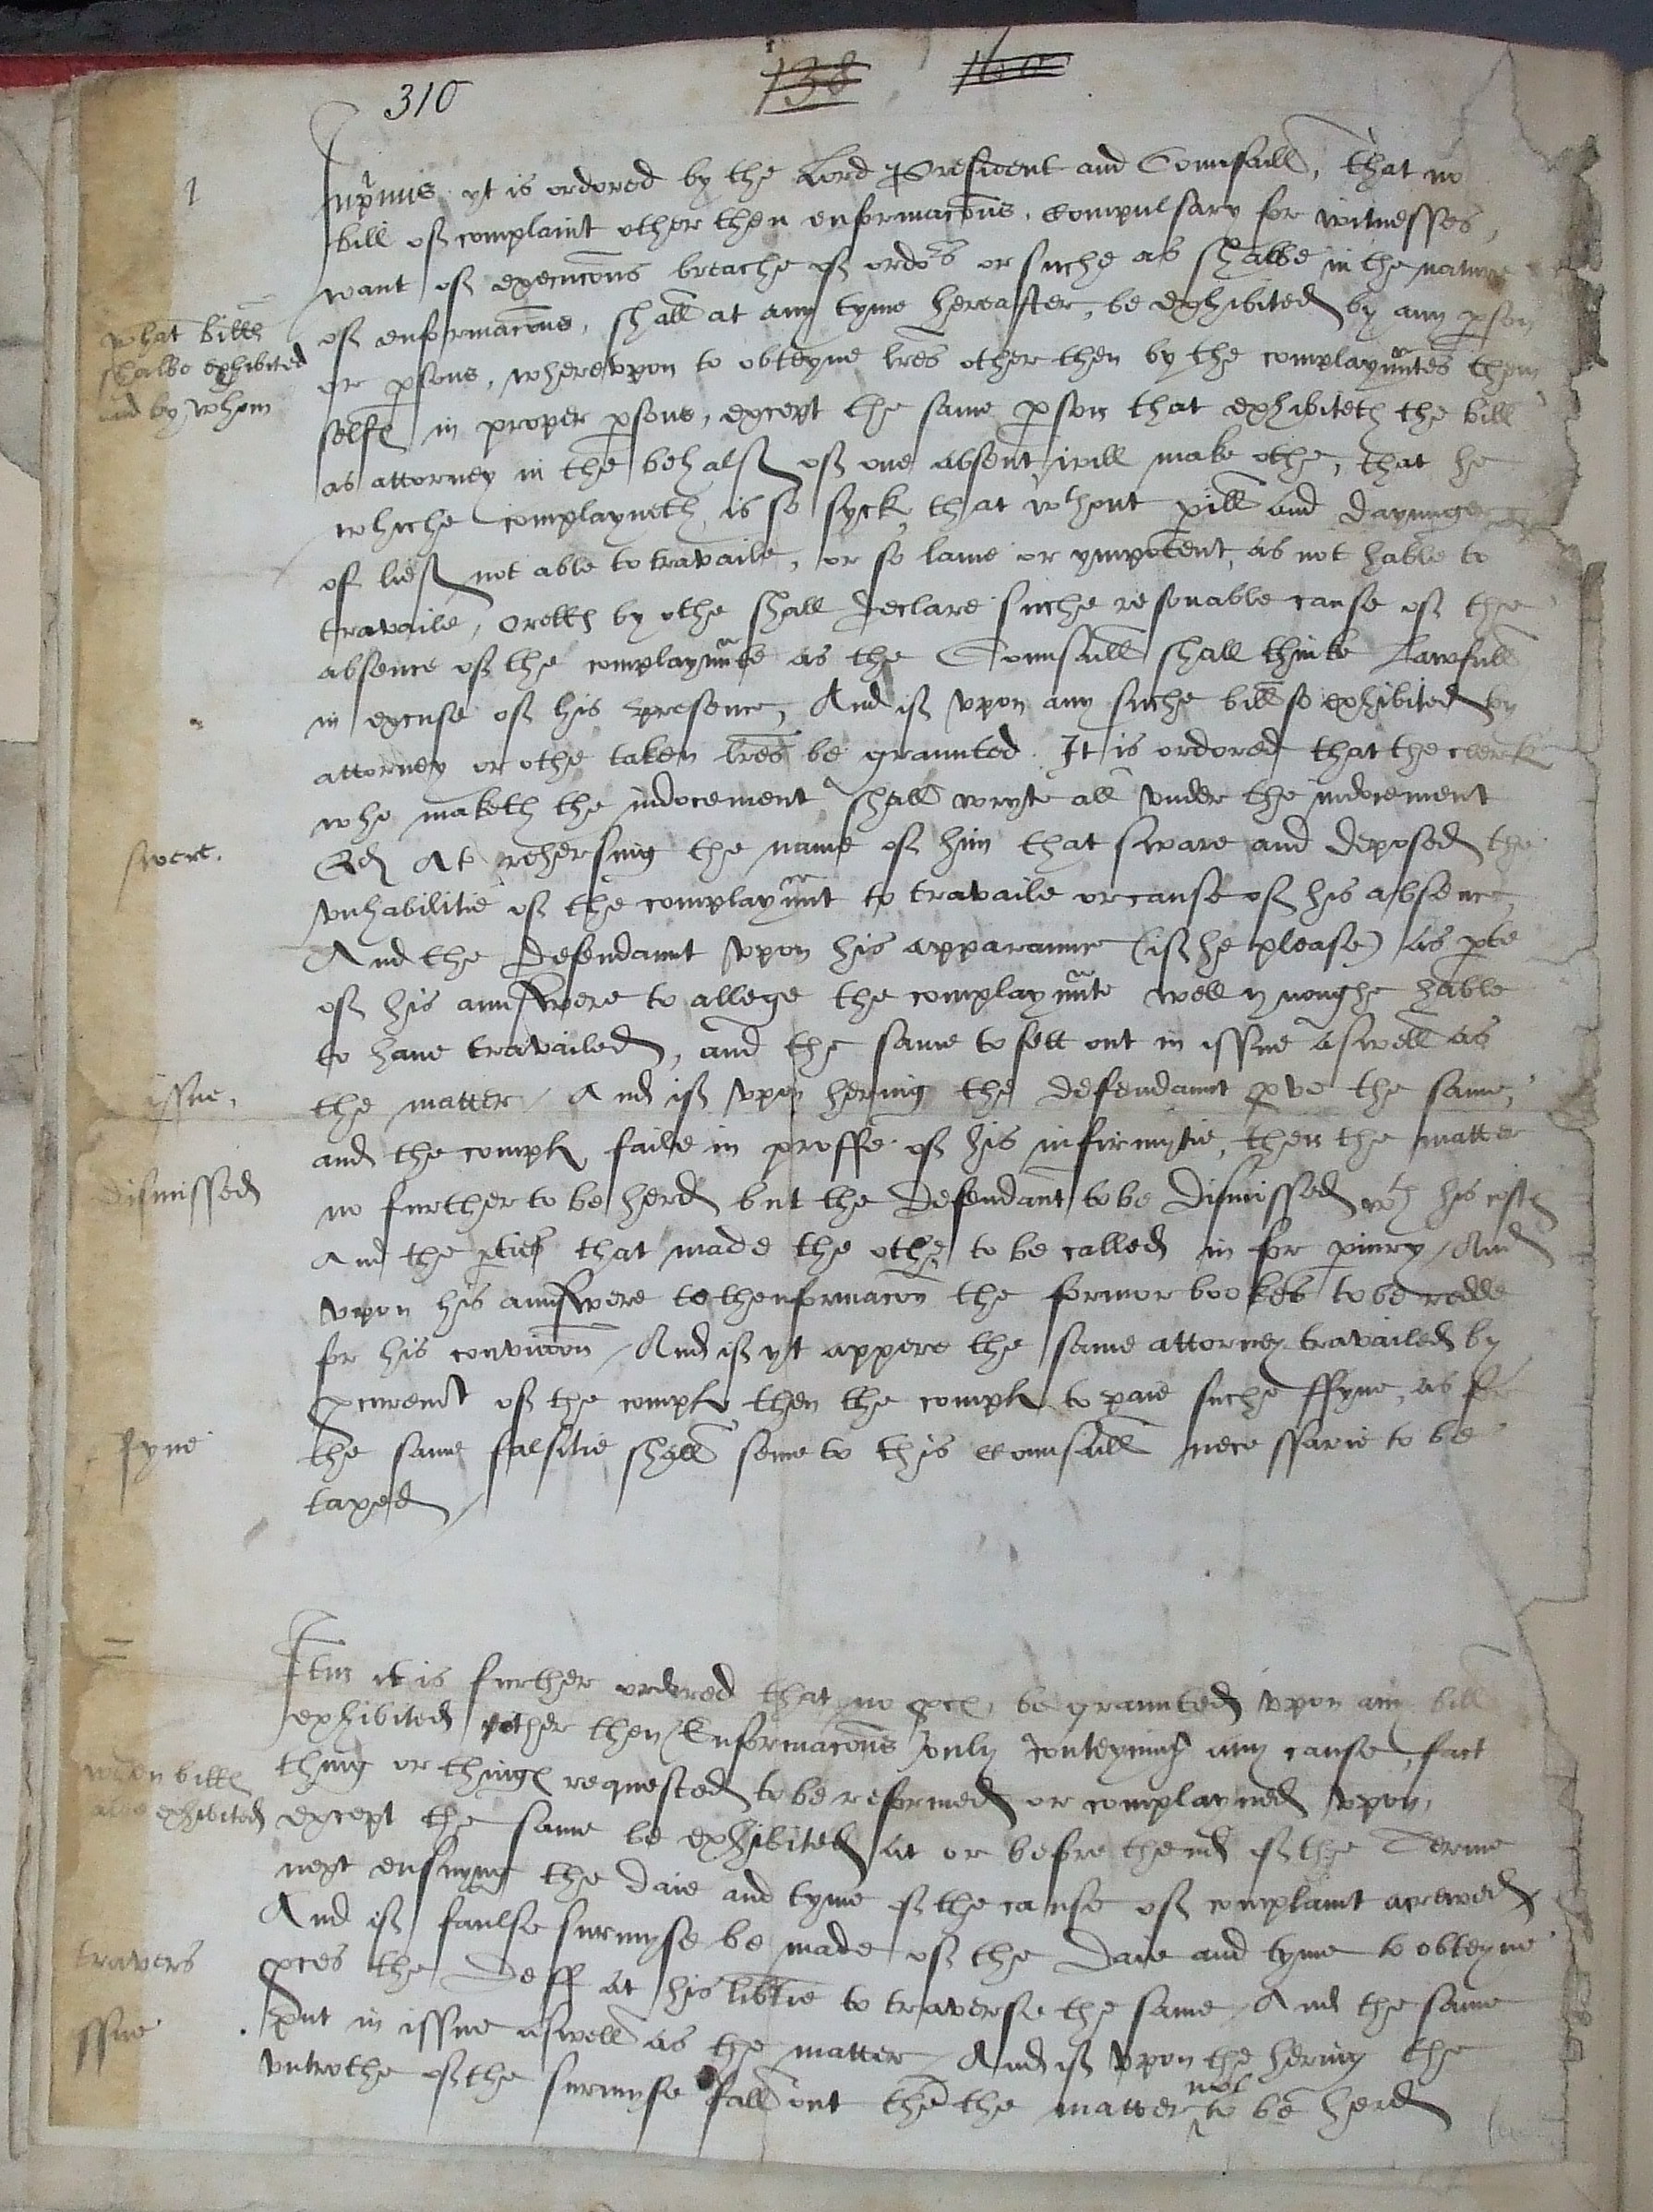 310 138 160
1
Inprimis yt is ordored by the Lord President and Counsaill, that no
bill of complaint other then enformacons, compulsary for witnesses,
want of execucons breache of ordors or suche as shalbe in the nature
of enformacons, shall at any tyme hereafter, be exhibited by any pson
what bills
shalbe exhibited
and by whom
or psons, whereupon to obteyne lres other then by the complaynntes them
selfs in proper psons, except the same pson that exhibiteth the bill
as attorney in the behalf of one absent will make othe, that he
whiche complayneth is so syck, that wthout pill and daynnger
of lief not able to travaile, or so lame or ympotent, as not hable to
travaile, or ells by othe shall declare suche resonable cause of the
absence of the complaynnte as the Counsaill shall thinke Lawfull
in excuse of his presence, And if upon any suche bill so exhibited by
attorney or othe taken lres be graunted. It is ordored that the clerk
who maketh the indocement shall wryte all under the indocement
swere.
At rehersing the name of him that sware and deposed the
unhabilitie of the complaynnt to travaile or cause of his absence,
And the defendannt upon his apparannce (if he please) as pte
of his annswere to allege the complaynnte well ynoughe hable
to have travailed, and the same to sett out in issue aswell as
issue,
the matter / And if upon hering the defendannt pve the same,
and the complt faile in proffe of his infirmytie, then the matter
dismissed
no further to be herd but the defendant to be dismissed wth his costs
And the pties that made the othe to be called in for piury / And
upon his annswere to thenformacon the formor bookes to be redde
for his conviccon / And if yt appere the same attorney travailed by
pcuremt of the complt then the complt to paie suche ffyne, as for
fyne
the same falsitie shall seme to this counsaill necessarie to be
taxed /
Itm it is further ordored that no pces, be graunted upon any bill
exhibited other then Enformacons only conteyning any cause, fact
thing or things requested to be reformed or complayned upon,
when bills
exhibited
except the same be exhibited at or before thend of the Terme
next ensuyng the daie and tyme of the cause of complaint acrewed
And if faulse surmyse be made of the daie and tyme to obteyne
travers
pces the Deff at his libtie to traverse the same / And the same
issue
put in issue aswell as the matter / And if upon the hering the
untrothe of the surmyse fall out the the matter not to be herd